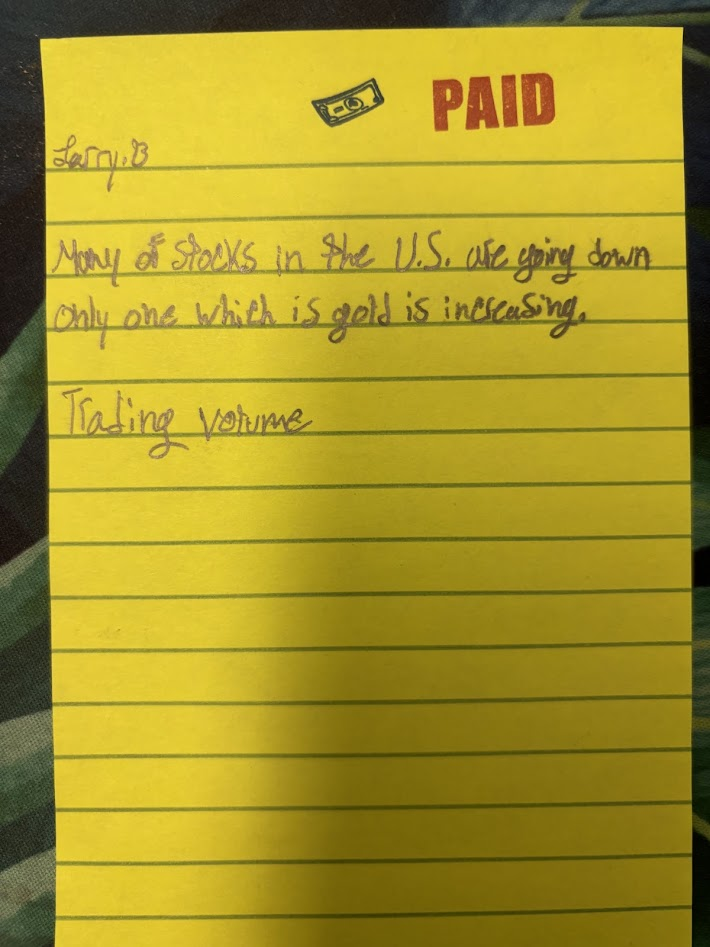 PAID
Larry.B
Many of stocks in the U.S. are going down
only one which is gold is increasing.
Trading volume